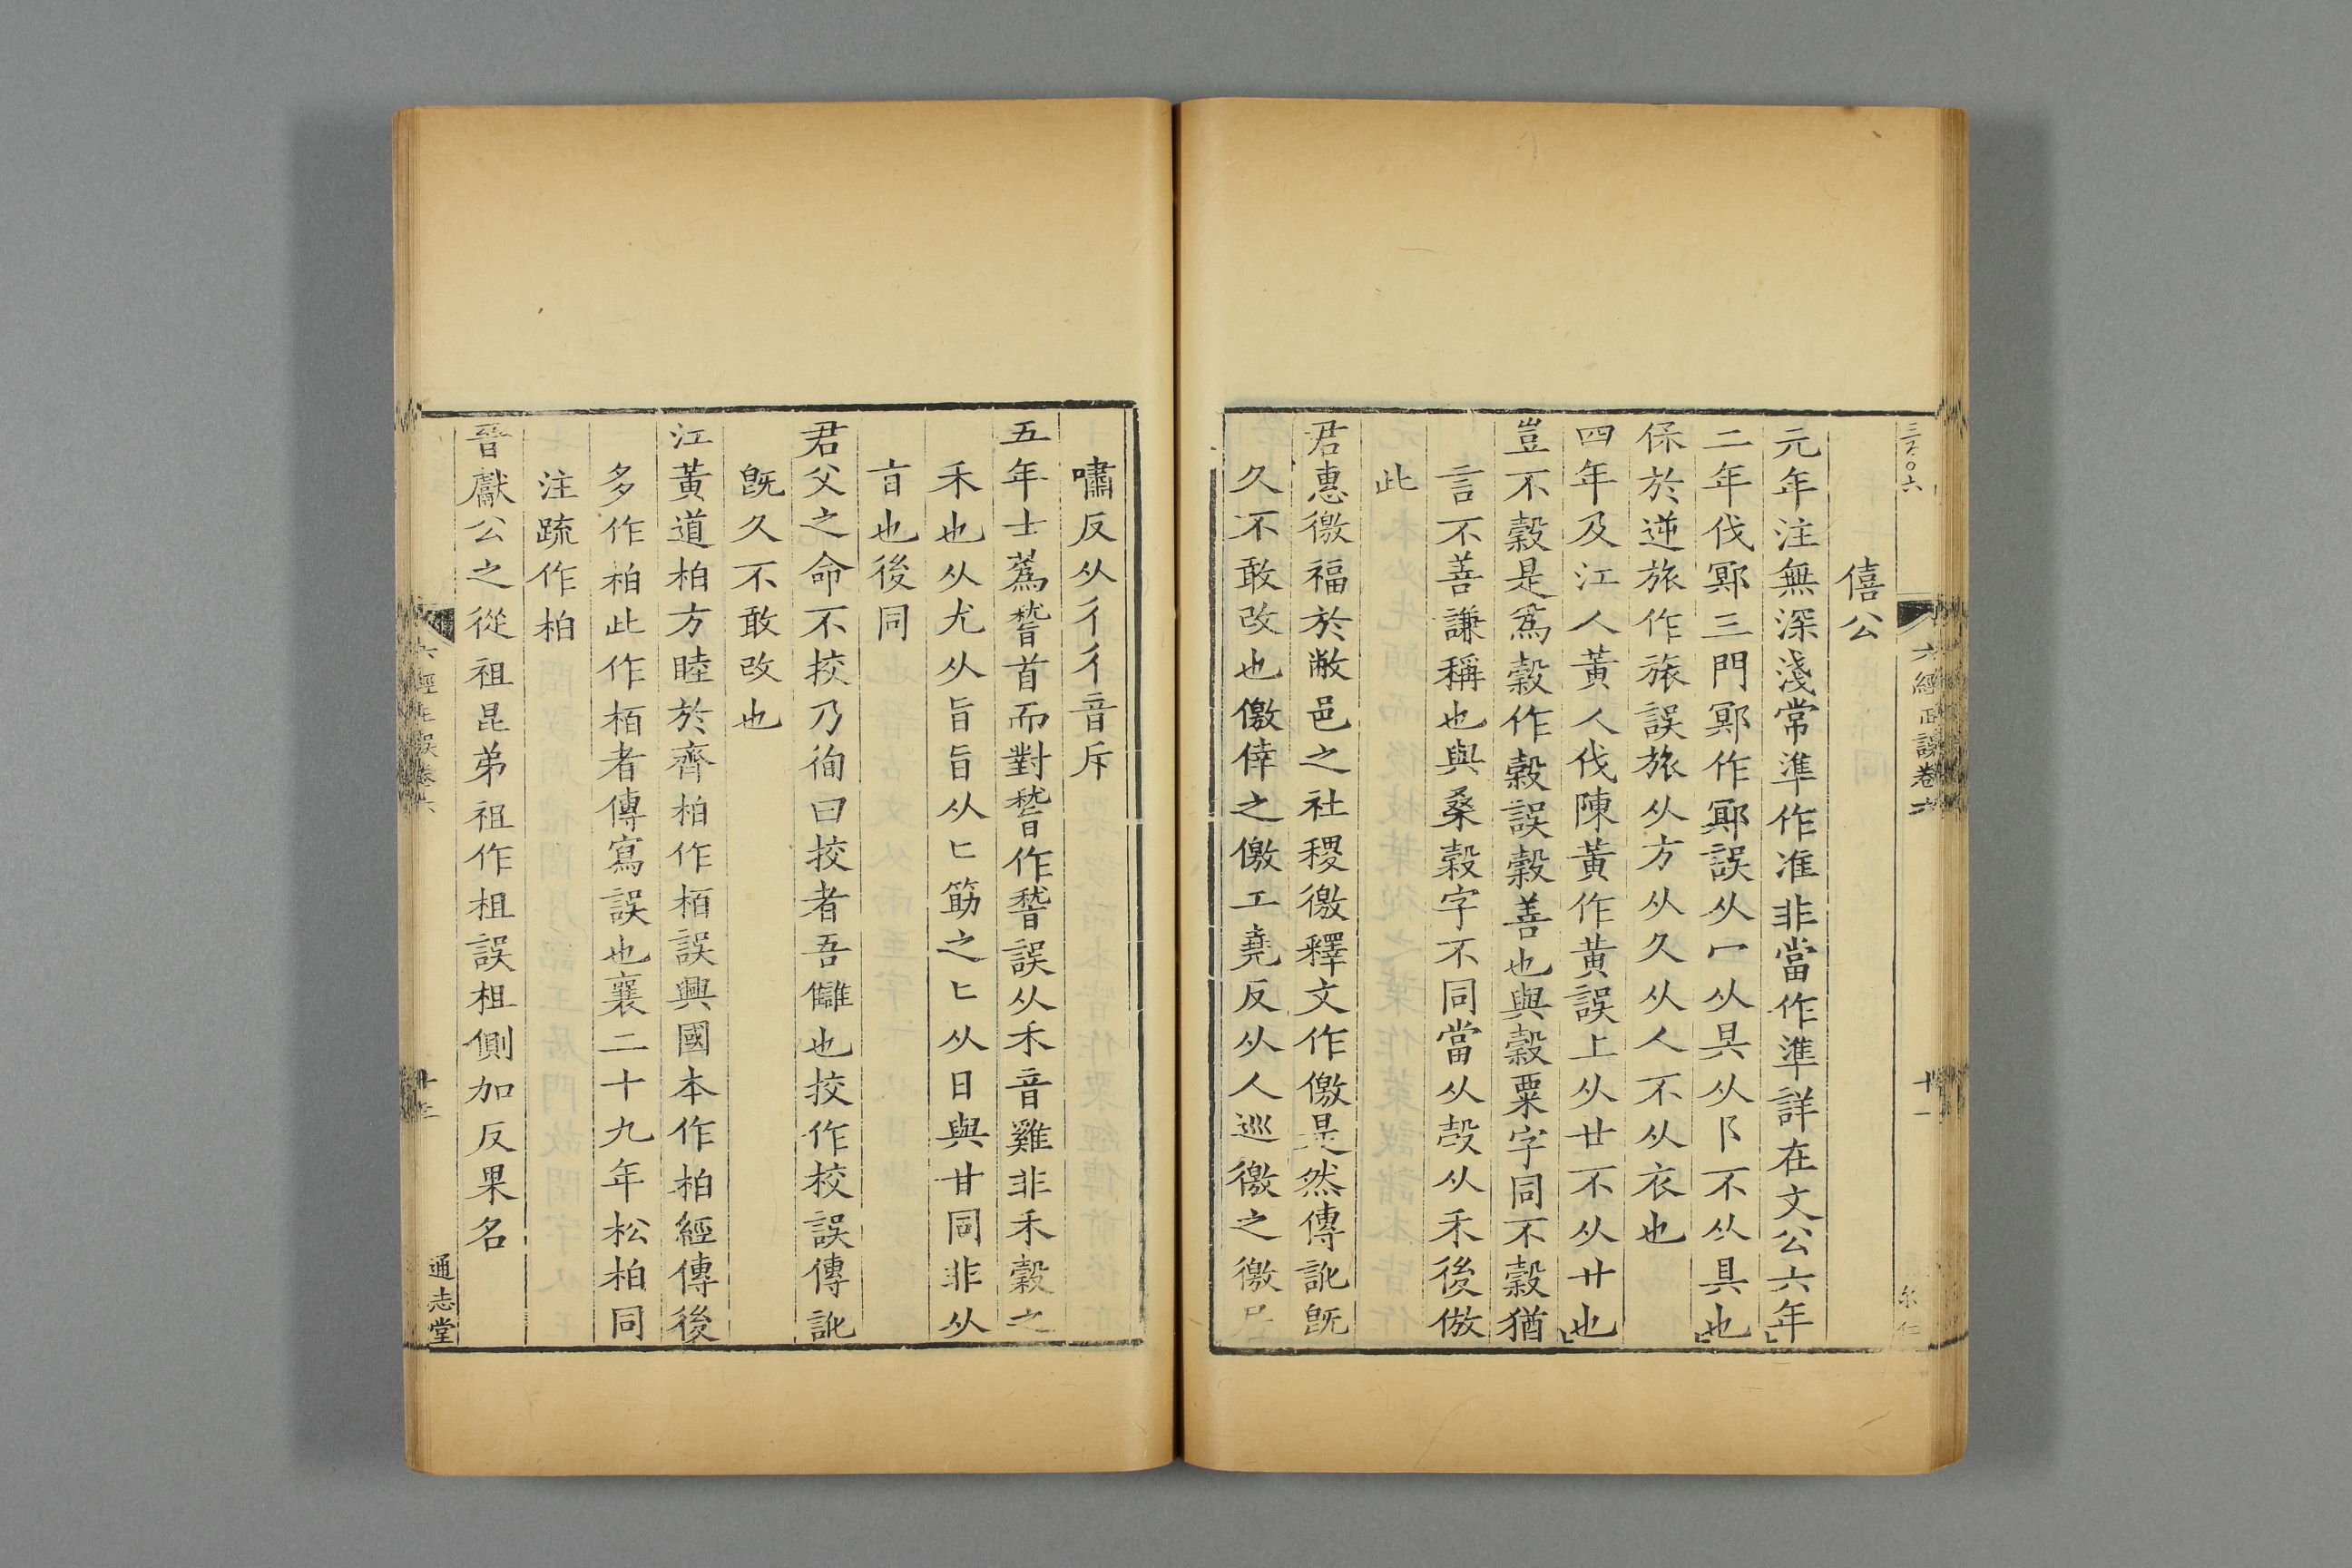 僖公
元年注無深淺常準作准非當作準詳在文公六年
二年伐鄍三門鄍作鄍誤从冖从㒷从阝不从具也
保於逆旅作旅誤旅从方从久从人不从衣也
四年及江人黃人伐陳黃作黄誤上从廿不从廾也
豈不穀是爲穀作榖誤穀善也與穀粟字同不穀猶
言不善謙稱也與桑榖字不同當从㱿从禾後倣
此
君惠徼福於敝邑之社稷徼釋文作儌是然傳訛旣
久不敢改也儌倖之儌工堯反从人巡徼之徼
嘯反从彳彳音斥
五年士蔿稽首而對稽作稽誤从禾音雞非禾穀之
禾也从尤从旨旨从匕筯之匕从日與甘同非从
盲也後同
君父之命不挍乃徇曰挍者吾讎也挍作校誤傳訛
旣久不敢改也
江黃道柏方睦於齊柏作栢誤興國本作柏經傳後
多作柏此作栢者傳寫誤也襄二十九年松柏同
注疏作柏
晉獻公之從祖昆弟祖作柤誤柤側加反果名
六經正誤卷六
十一
通志堂